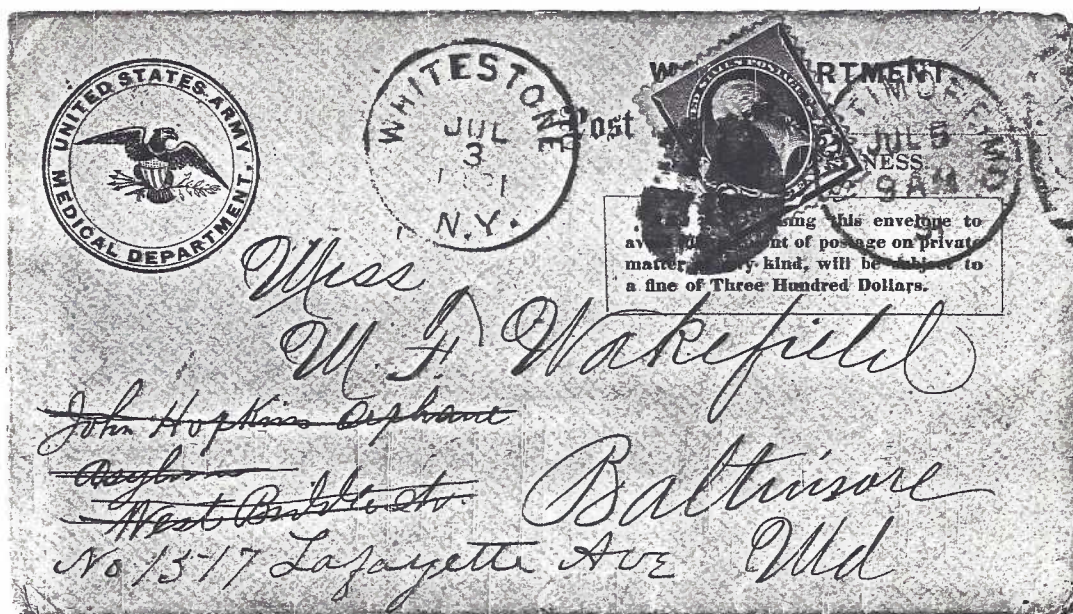 UNITED STATES ARMY
MEDICAL DEPARTMENT.
WHITESTONE
JUL
3
N.Y.
Post
RTMENT,
TIMORE MD
JUL 5
9 AM
NESS.
sing this envelope to
av nt of postage on private
matter kind, will be subject to
a fine of Three Hundred Dollars.
Miss
M. F. Wakefield
John Hopkins Orphane
asylum
West St.
Baltimore
No 1517 Lafayette Ave Md